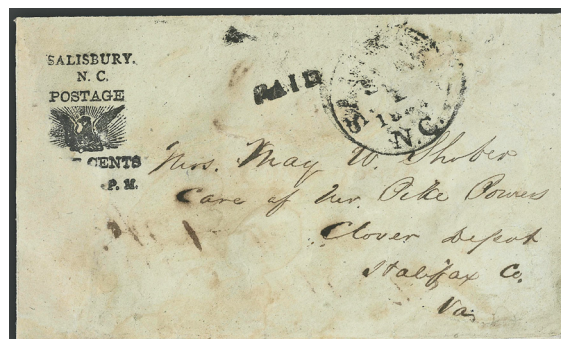 SALISBURY.
N. C.
POSTAGE
CENTS
P. M.
PAID
N.C.
Mrs. May W. Shober
Care of Mr. Pike Powers
Clover Depot
Halifax Co.
Va.